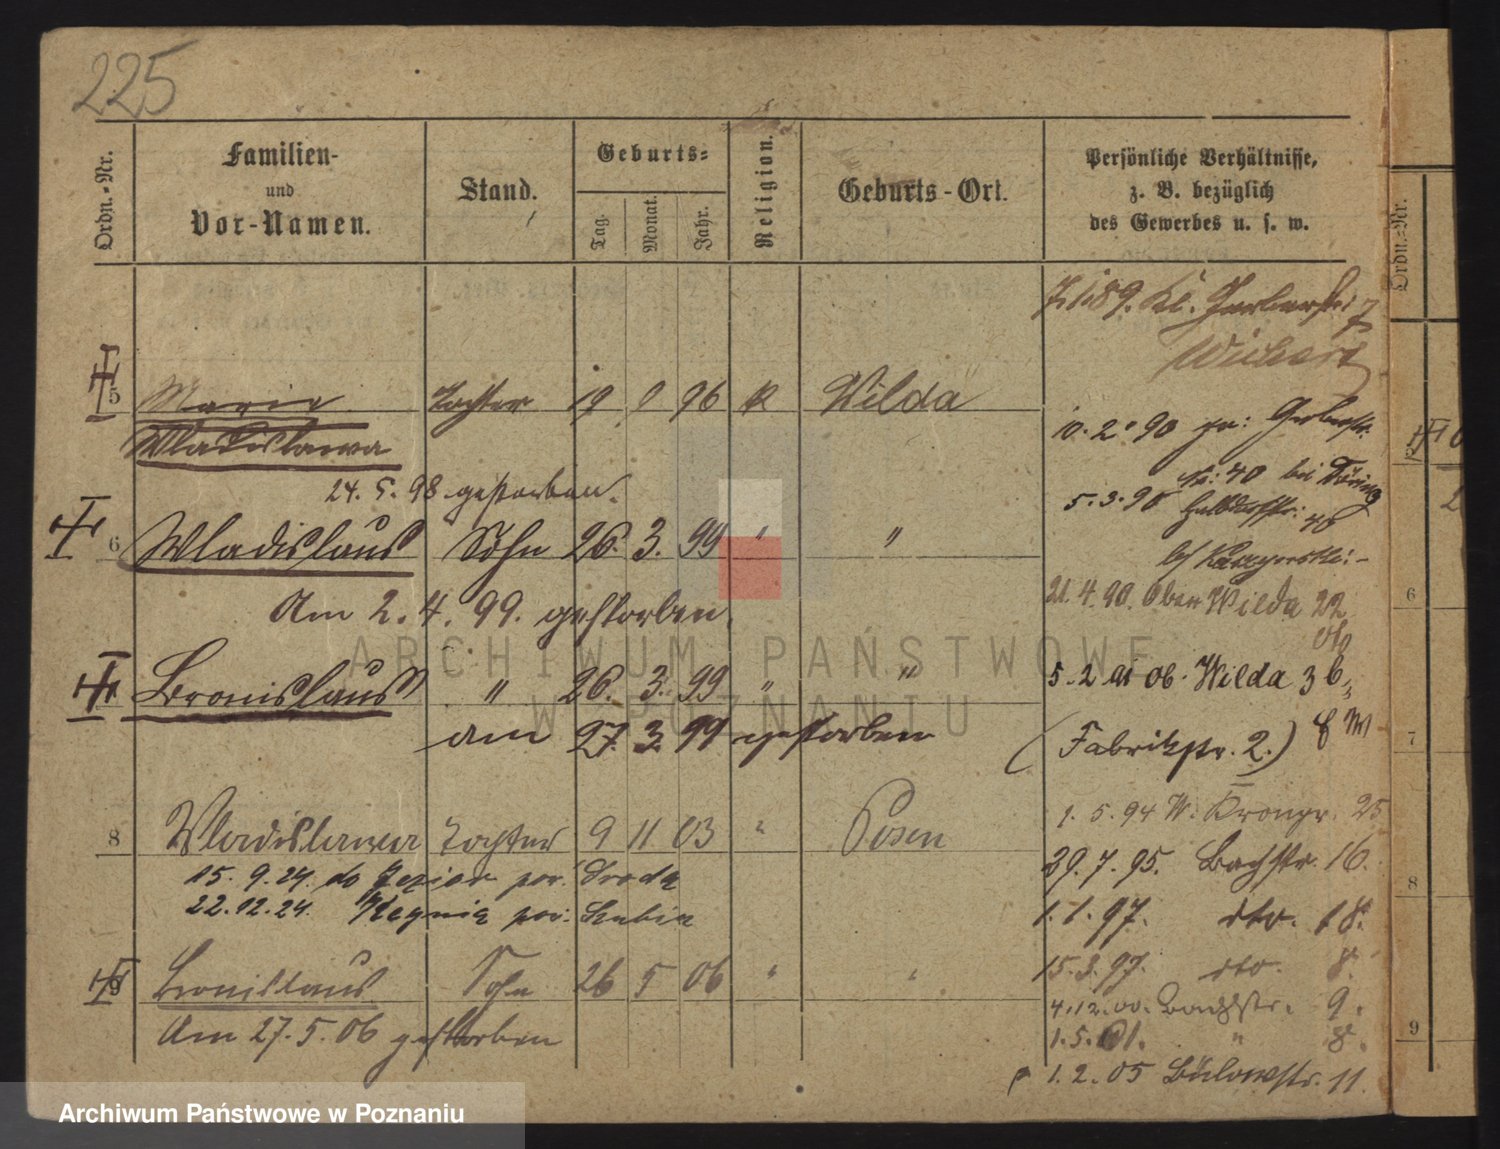 225
Ordn.-Nr.
Familien-
und
Vor-Namen.
Stand.
Geburts-
Tag.
Monat.
Jahr.
Religion.
Geburts-Ort.
Persönliche Verhältnisse,
z. B. bezüglich
des Gewerbes u. s. w.
Ordn.-Nr.
5 Marie Tochter 19 9 96 k Wilda
Wladislawa
24. 5. 98 gestorben.
6 Wladislaus Sohn 26. 3. 99 " "
Am 2. 4. 99. gestorben.
Bronislaus " 26. 3. 99 " "
am 27. 3. 99 gestorben
8 Wladislawa Tochter 9 11 03 " Posen
15. 9. 24. do Jezior pow. Środa
22.12.24. pow. Szubin
9 Bronislaus Sohn 26 5 06 " "
Am 27. 5. 06 gestorben
7.1.89. Kl. Gerberstr. 7
10. 2. 90 Gerberstr.
40 bei Döring
5. 3. 90 Halbdorfstr. 40
21. 4. 90. Oben Wilda 22
5. 2. 91 Ob. Wilda 36
(Fabrikstr. 2.)
1. 5. 94 W. Kronpr. 25
29. 7. 95. Bachstr. 16.
1. 1. 97. dto. 18.
15. 3. 97. dto. 8.
4. 12. 00. Bachstr. 9.
1. 5. 01. " 8.
1. 2. 05 Bülowstr. 11.
6
7
8
9
ARCHIWUM PAŃSTWOWE
W POZNANIU
Archiwum Państwowe w Poznaniu